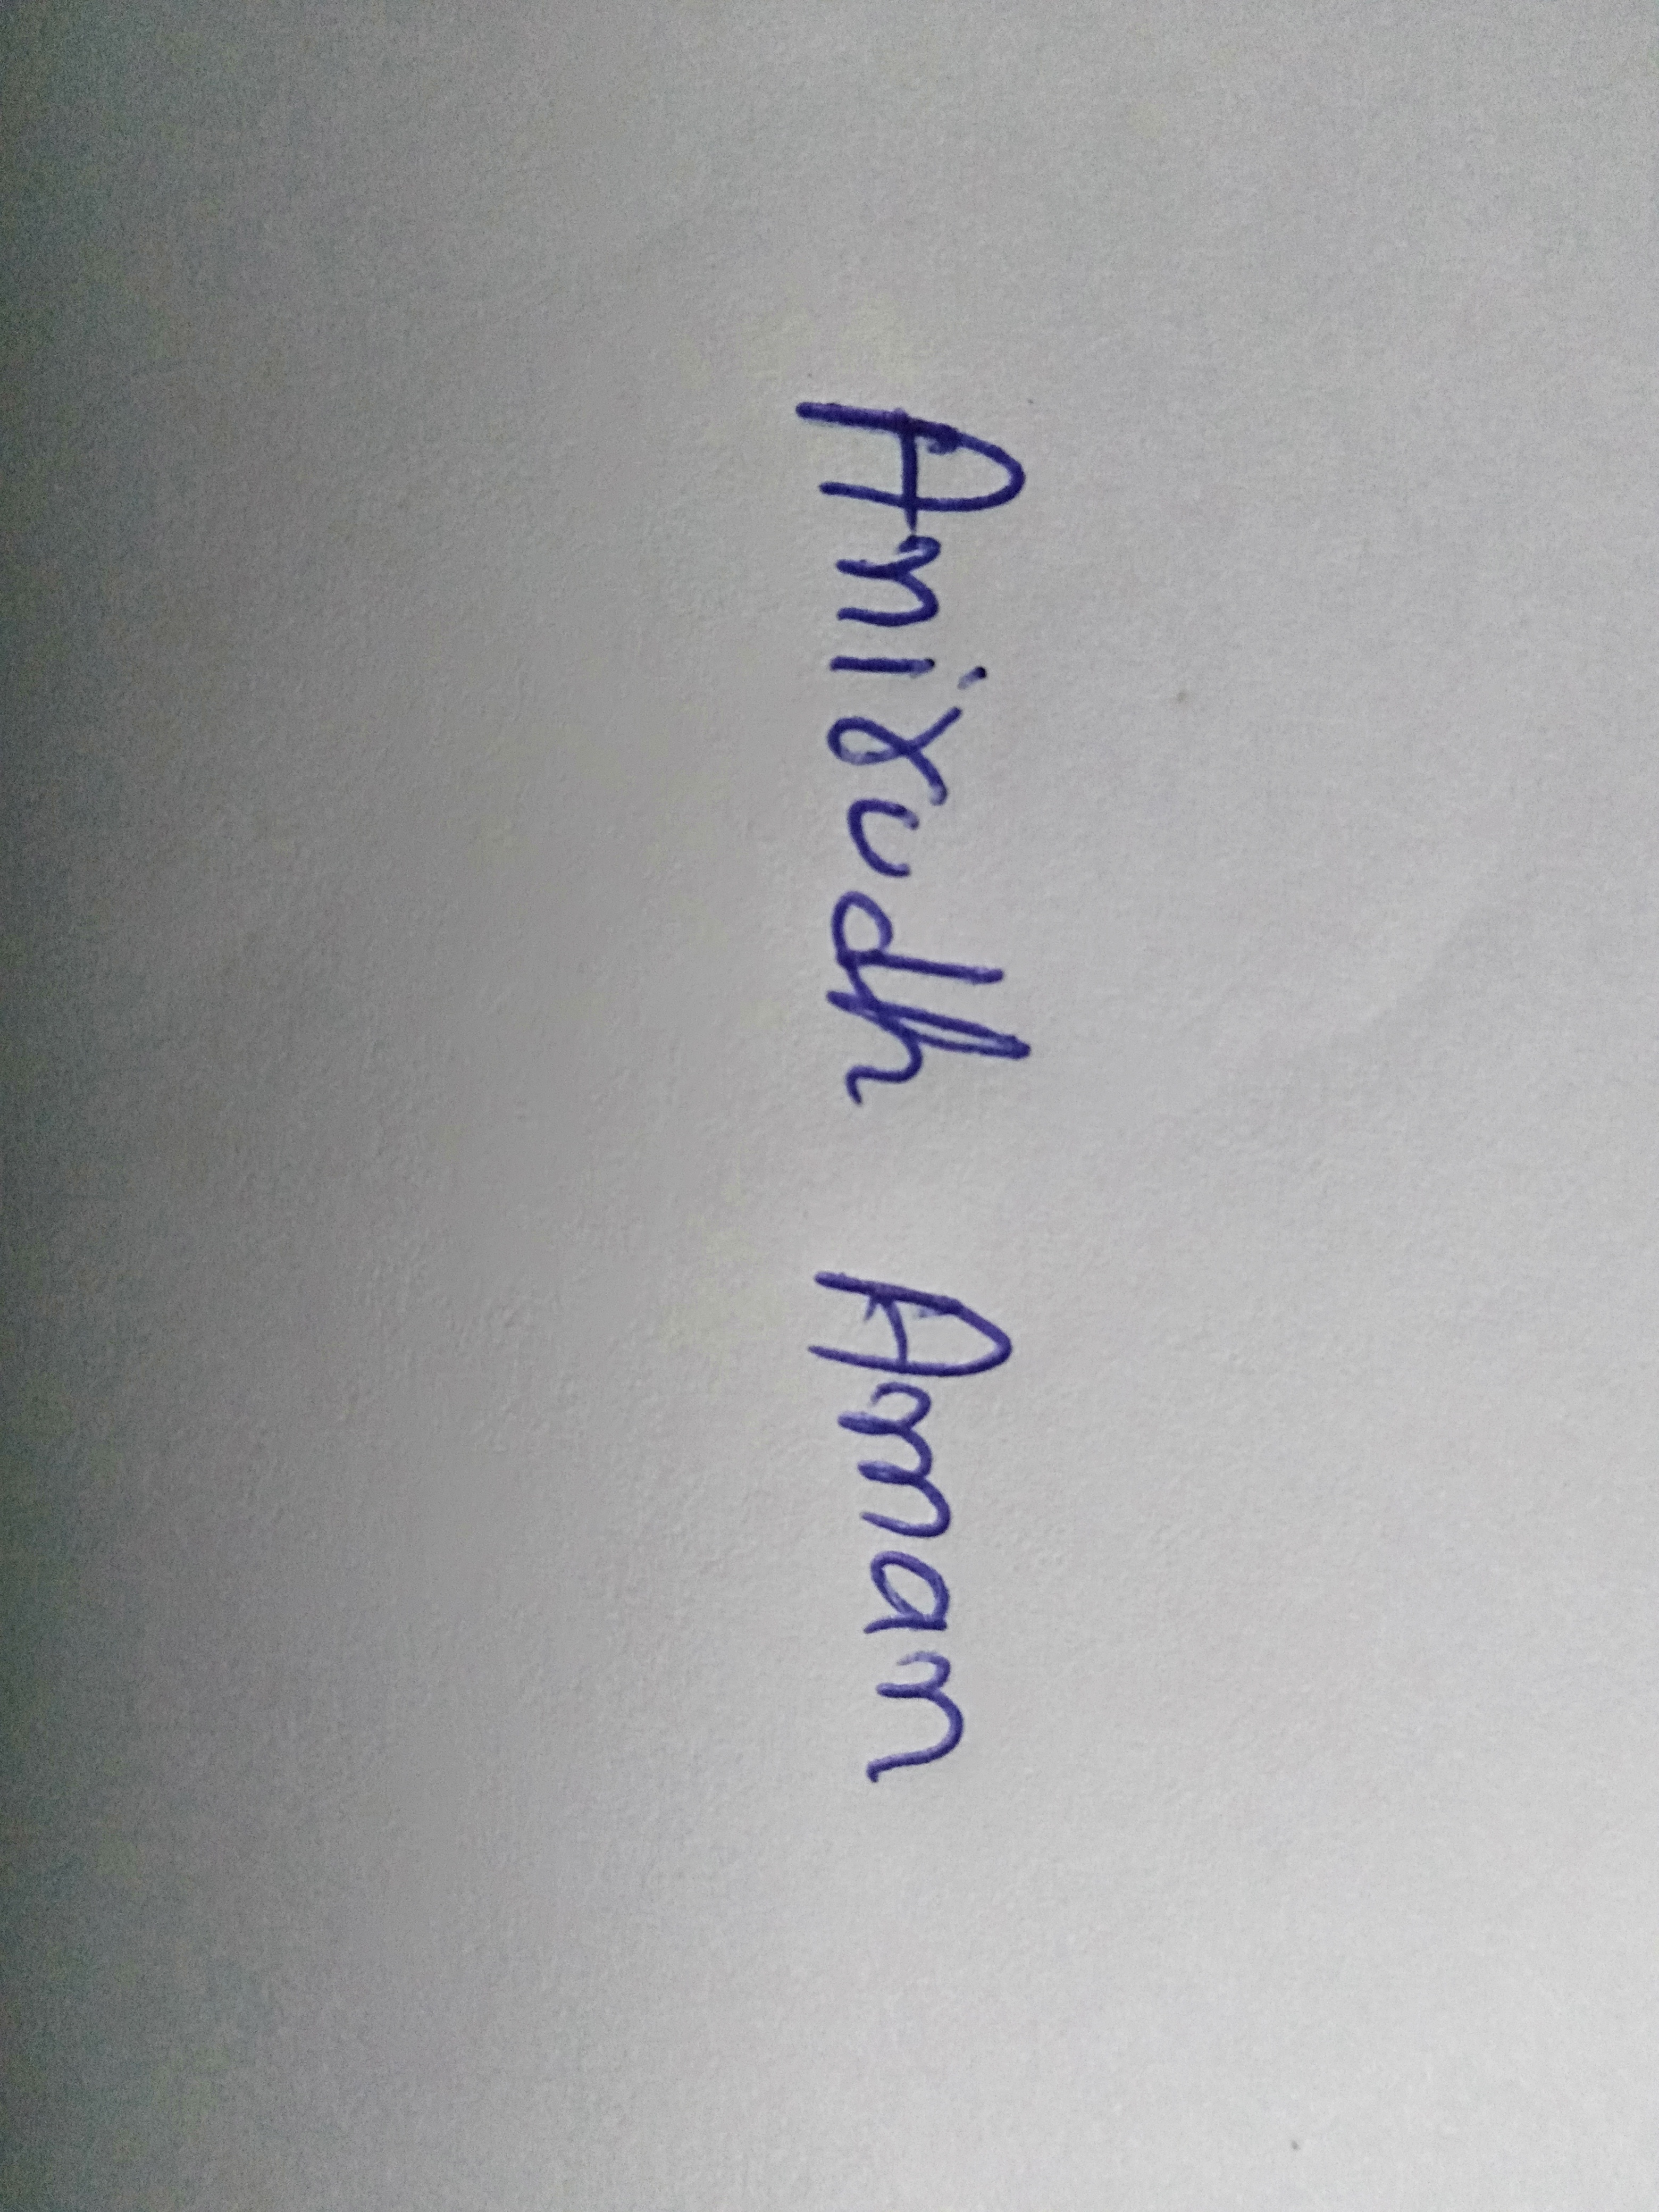 Anirudh Aman